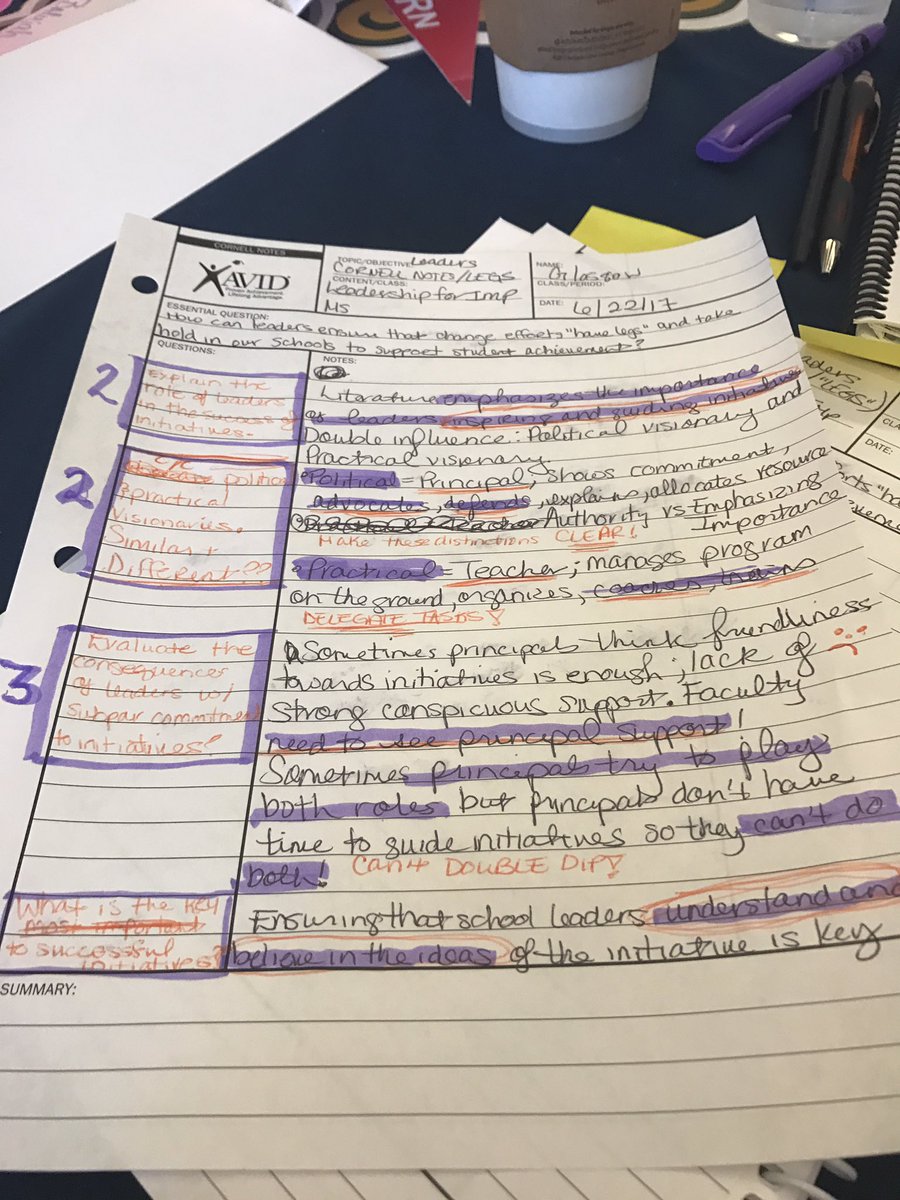 RN
CORNELL NOTES
AVID
Proven Achievement.
Lifelong Advantage.
TOPIC/OBJECTIVE: Leaders
CORNELL NOTES/LEGS
CONTENT/CLASS:
Leadership for Imp
MS
NAME:
Glasgow
CLASS/PERIOD:
DATE: 6/22/17
ESSENTIAL QUESTION:
How can leaders ensure that change efforts "have legs" and take
hold in our schools to support student achievement?
QUESTIONS:
NOTES:
2
Explain the
role of leaders
in the success of
initiatives.
Literature emphasizes the importance
of leaders inspiring and guiding initiatives
Double influence: Political visionary and
Practical visionary.
2
C/C
political
& practical
visionaries.
Similar +
Different??
Political = Principal, shows commitment,
advocates, depends, explains, allocates resource
Authority vs Emphasizing
Importance
Make these distinctions CLEAR!
Practical = Teacher; manages program
on the ground, organizes, coaches, trains
DELEGATE TASKS!
3
Evaluate the
consequences
of leaders w/
subpar commitment
to initiatives?
Sometimes principals think friendliness
towards initiatives is enough; lack of
strong conspicuous support. Faculty
need to see principal support!
Sometimes principals try to play
both roles but principals don't have
time to guide initiatives so they can't do
both! Can't DOUBLE DIP!
What is the key
most important
to successful
initiatives?
Ensuring that school leaders understand and
believe in the ideas of the initiative is key
SUMMARY:
aders
"LEGS"
CLA
DATE: